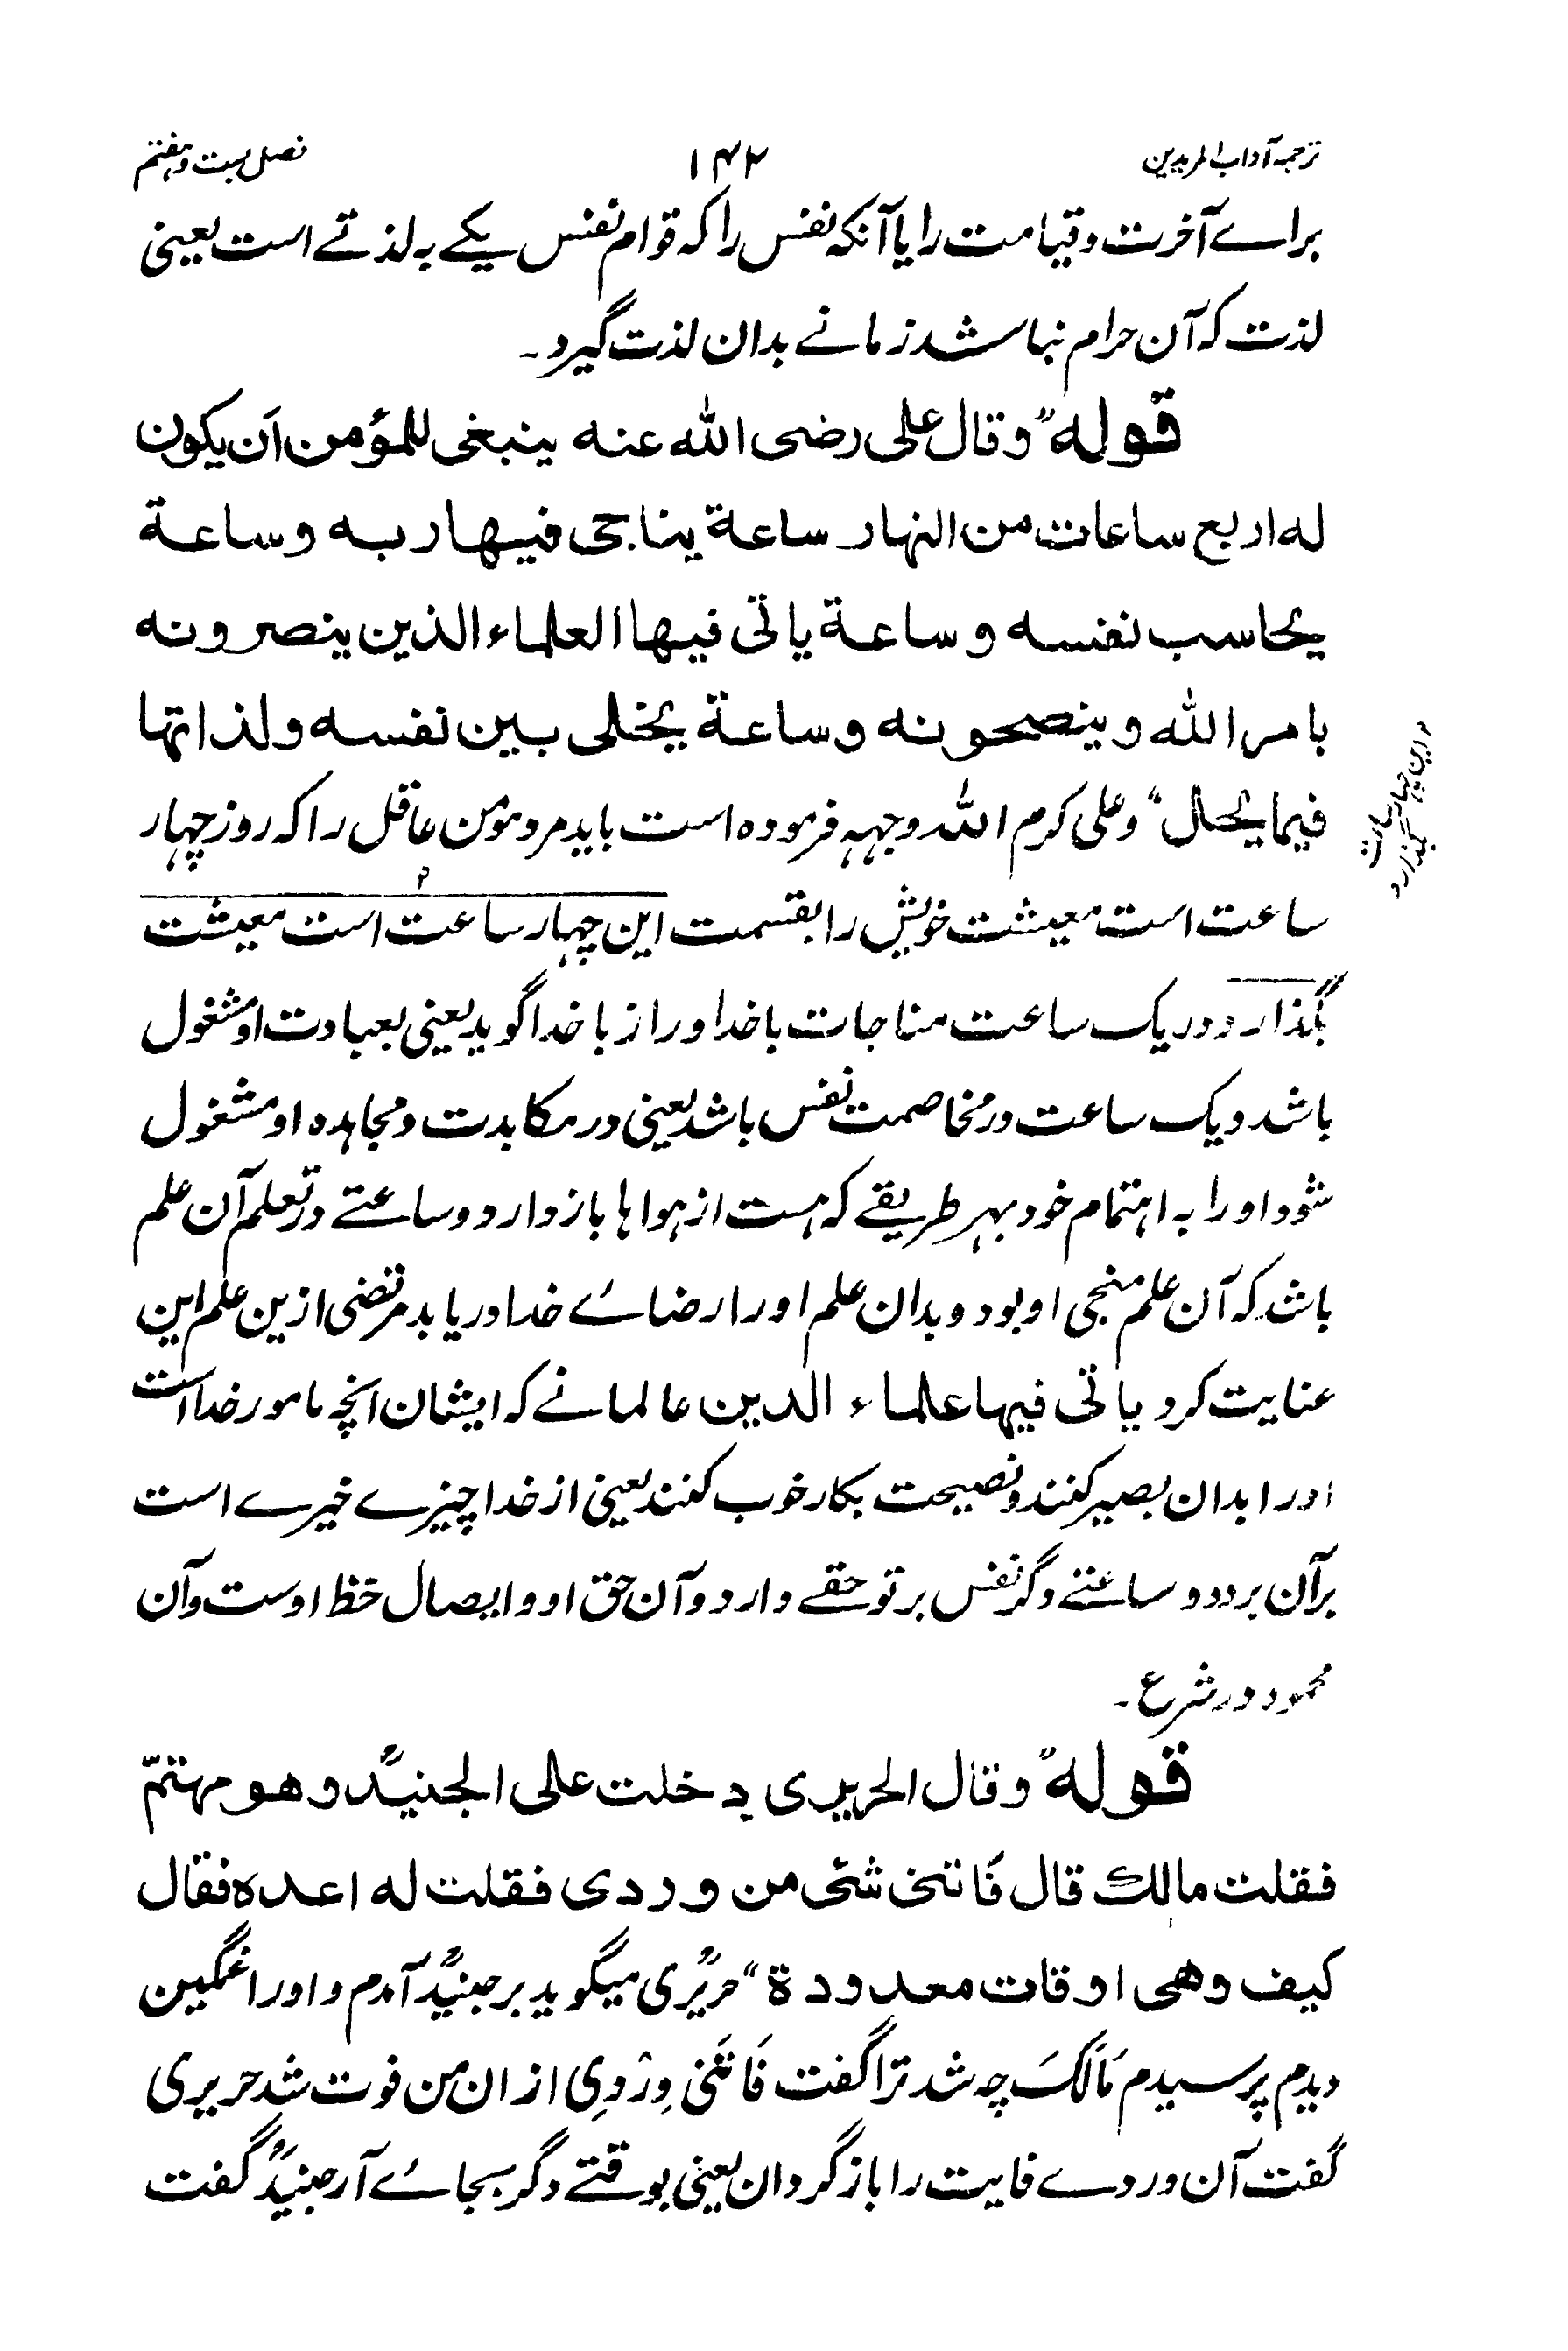 ترجمہ آداب المریدین ۱۴۲ فصل بیست و ہفتم
براے آخرت و قیامت را یا آنکہ نفس را کہ قوام نفس یکے بہ لذتے است یعنی
لذت کہ آن حرام نباشد زمانے بدان لذت گیرد۔
قولہ ” وقال علی رضی اللہ عنہ ینبغی للمؤمن اَن یکون
لہ اربع ساعات من النہار ساعة یناجی فیہا ربہ وساعة
یحاسب نفسہ وساعة یاتی فیہا العلماء الذین ینصرونہ
بامر اللہ وینصحونہ وساعة یخلی بین نفسہ ولذاتہا
فیما یحل “ وعلی کرم اللہ وجہہ فرمودہ است باید مرد مؤمن عاقل را کہ روز چہار
ساعت است معیشت خویش را بقسمت این چہار ساعت است معیشت
بگذارد و در یک ساعت مناجات با خدا و راز با خدا گوید یعنی بعبادت او مشغول
باشد و یک ساعت در مخاصمت نفس باشد یعنی در مکابدت و مجاہدہ او مشغول
شود او را بہ اہتمام خود بہر طریقے کہ ہست از ہواہا باز دارد و ساعتے در تعلم آن علم
باشد کہ آن علم منجی او بود و بدان علم او را رضائے خدا دریابد مرتضی ازین علم این
عنایت کرد یاتی فیہا علماء الدین عالمانے کہ ایشان انچہ مامور خدا است
او را بدان بصیر کنند و نصیحت بکار خوب کنند یعنی از خدا چیزے خیرے است
برآن برد و ساعتے دگر نفس بر تو حقے دارد و آن حق او و ایصال حظ اوست و آن
محمود در شرع۔
قولہ ” وقال الحریری دخلت علی الجنیدؒ وھو مہتمّ
فقلت مالک قال فَاتنی شئی من وردی فقلت لہ اعدہ فقال
کیف وھی اوقات معدودة “ حریریؒ میگوید بر جنیدؒ آمدم و او را غمگین
دیدم پرسیدم مَالَکَ چہ شد ترا گفت فَاتَنی وِرْدِی از ان من فوت شد حریری
گفت آن وردے فایت را باز گردان یعنی بوقتے دگر بجائے آر جنیدؒ گفت
و این چہار ساعت
بگذارد